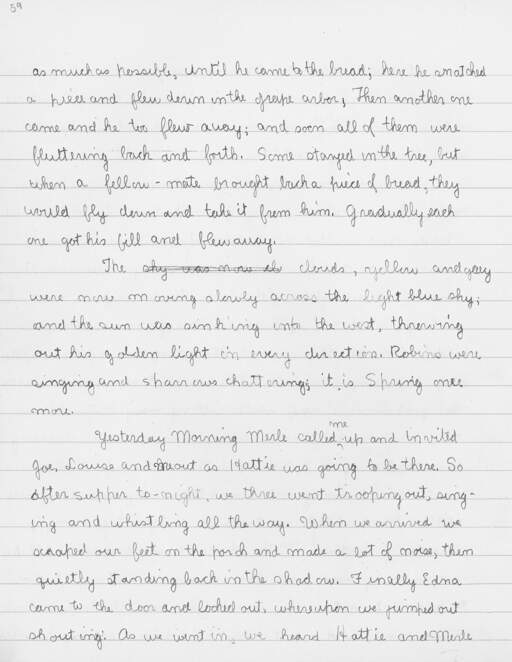 59
as much as possible, until he came to the bread; here he snatched
a piece and flew down in the grape arbor, Then another one
came and he too flew away; and soon all of them were
fluttering back and forth. Some stayed in the tree, but
when a fellow-mate brought back a piece of bread, they
would fly down and take it from him. Gradually each
one got his fill and flew away.
The sky was now cl clouds, yellow and gray
were now moving slowly across the light blue sky;
and the sun was sinking into the west, throwing
out his golden light in every direction. Robins were
singing and sparrows chattering; it is Spring once
more.
Yesterday Morning Merle called me up and invited
Joe, Louise and out as Hattie was going to be there. So
after supper to-night, we three went trooping out, sing-
ing and whistling all the way. When we arrived we
scraped our feet on the porch and made a lot of noise, then
quietly standing back in the shadow. Finally Edna
came to the door and looked out, whereupon we jumped out
shouting. As we went in, we heard Hattie and Merle